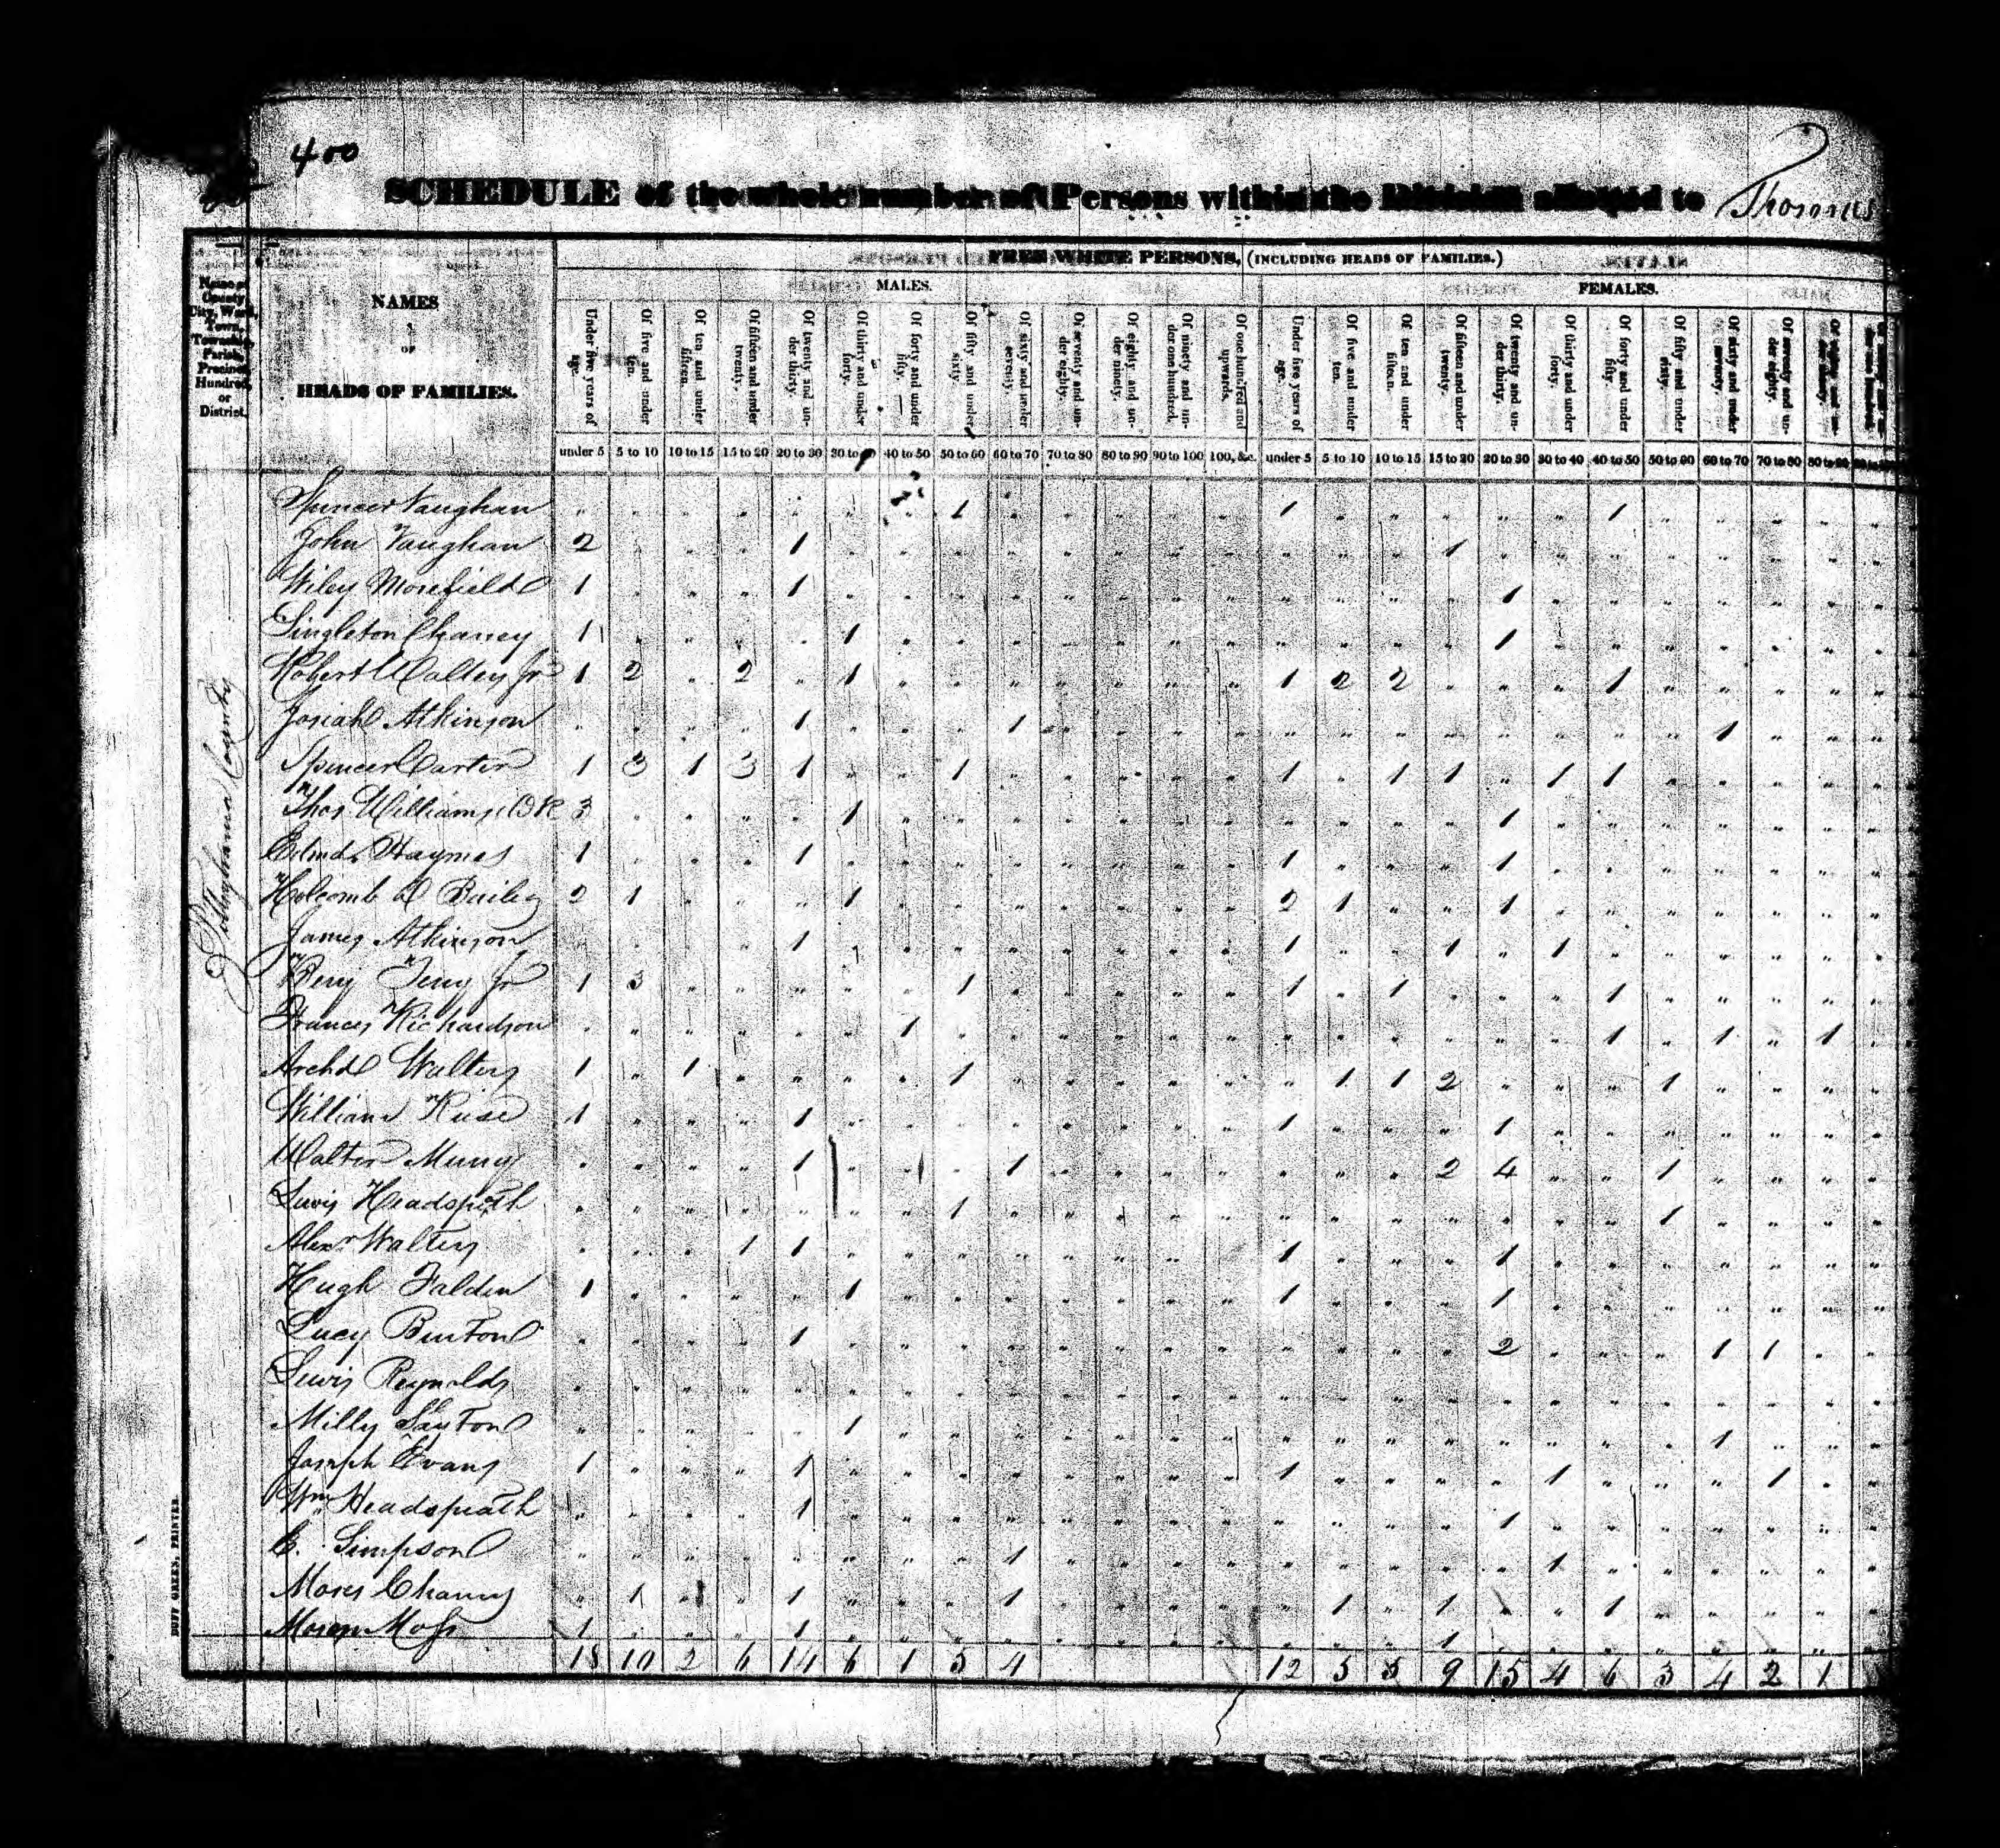 400
SCHEDULE of the whole number of Persons within the Division allotted to Thomas
FREE WHITE PERSONS, (INCLUDING HEADS OF FAMILIES.)
MALES. FEMALES.
Name of County, City, Ward, Town, Township, Parish, Precinct, Hundred, or District.
NAMES
OF
HEADS OF FAMILIES.
Under five years of age. Of five and under ten. Of ten and under fifteen. Of fifteen and under twenty. Of twenty and under thirty. Of thirty and under forty. Of forty and under fifty. Of fifty and under sixty. Of sixty and under seventy. Of seventy and under eighty. Of eighty and under ninety. Of ninety and under one hundred. Of one hundred and upwards. Under five years of age. Of five and under ten. Of ten and under fifteen. Of fifteen and under twenty. Of twenty and under thirty. Of thirty and under forty. Of forty and under fifty. Of fifty and under sixty. Of sixty and under seventy. Of seventy and under eighty.
under 5 5 to 10 10 to 15 15 to 20 20 to 30 30 to 40 40 to 50 50 to 60 60 to 70 70 to 80 80 to 90 90 to 100 100, &c. under 5 5 to 10 10 to 15 15 to 20 20 to 30 30 to 40 40 to 50 50 to 60 60 to 70 70 to 80 80 to 90
Pittsylvania County
Spencer Vaughan 1 1 1
John Vaughan 2 1 1
Wiley Morefield 1 1 1
Singleton Chaney 1 1 1
Robert Walters Jr 1 2 2 1 1 2 2 1
Josiah Atkinson 1 1 1
Spencer Carter 1 3 1 3 1 1 1 1 1 1 1
Thos Williams 3 1 1
Edmd Haymes 1 1 1 1
Holcomb D Bailey 2 1 1 2 1 1
James Atkinson 1 1 1 1
Benj Terry Jr 1 3 1 1 1 1
Frances Richardson 1 1 1 1
Archd Walters 1 1 1 1 1 2 1
William Kuse 1 1 1 1
Walter Murry 1 1 2 4 1
Lewis Headspeth 1 1
Alexr Walters 1 1 1 1
Hugh Falden 1 1 1 1
Lucy Burton 1 2 1 1
Lewis Reynolds
Milly Layton 1 1
Joseph Evans 1 1 1 1 1
Wm Headspeath 1 1
C. Simpson 1 1
Moses Chaney 1 1 1 1 1 1
Moses Moss 1 1 1
18 10 2 6 14 6 1 5 4 12 5 5 9 15 4 6 3 4 2 1
DUFF GREEN, PRINTER.